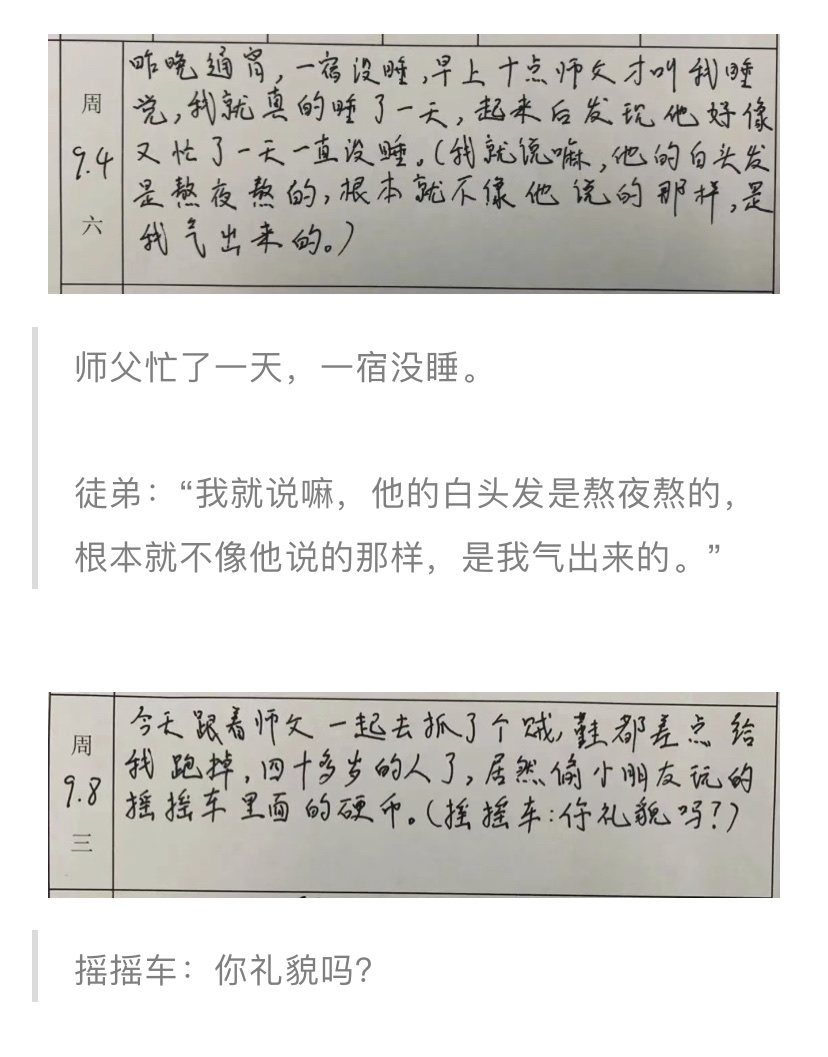 昨晚通宵,一宿没睡,早上十点师父才叫我睡
觉,我就真的睡了一天,起来后发现他好像
又忙了一天一直没睡。(我就说嘛,他的白头发
是熬夜熬的,根本就不像他说的那样,是
我气出来的。)
周
9.4
六
师父忙了一天，一宿没睡。
徒弟：“我就说嘛，他的白头发是熬夜熬的，
根本就不像他说的那样，是我气出来的。”
今天跟着师父一起去抓了个贼,鞋都差点给
我跑掉,四十多岁的人了,居然偷小朋友玩的
摇摇车里面的硬币。(摇摇车:你礼貌吗?)
周
9.8
三
摇摇车：你礼貌吗？